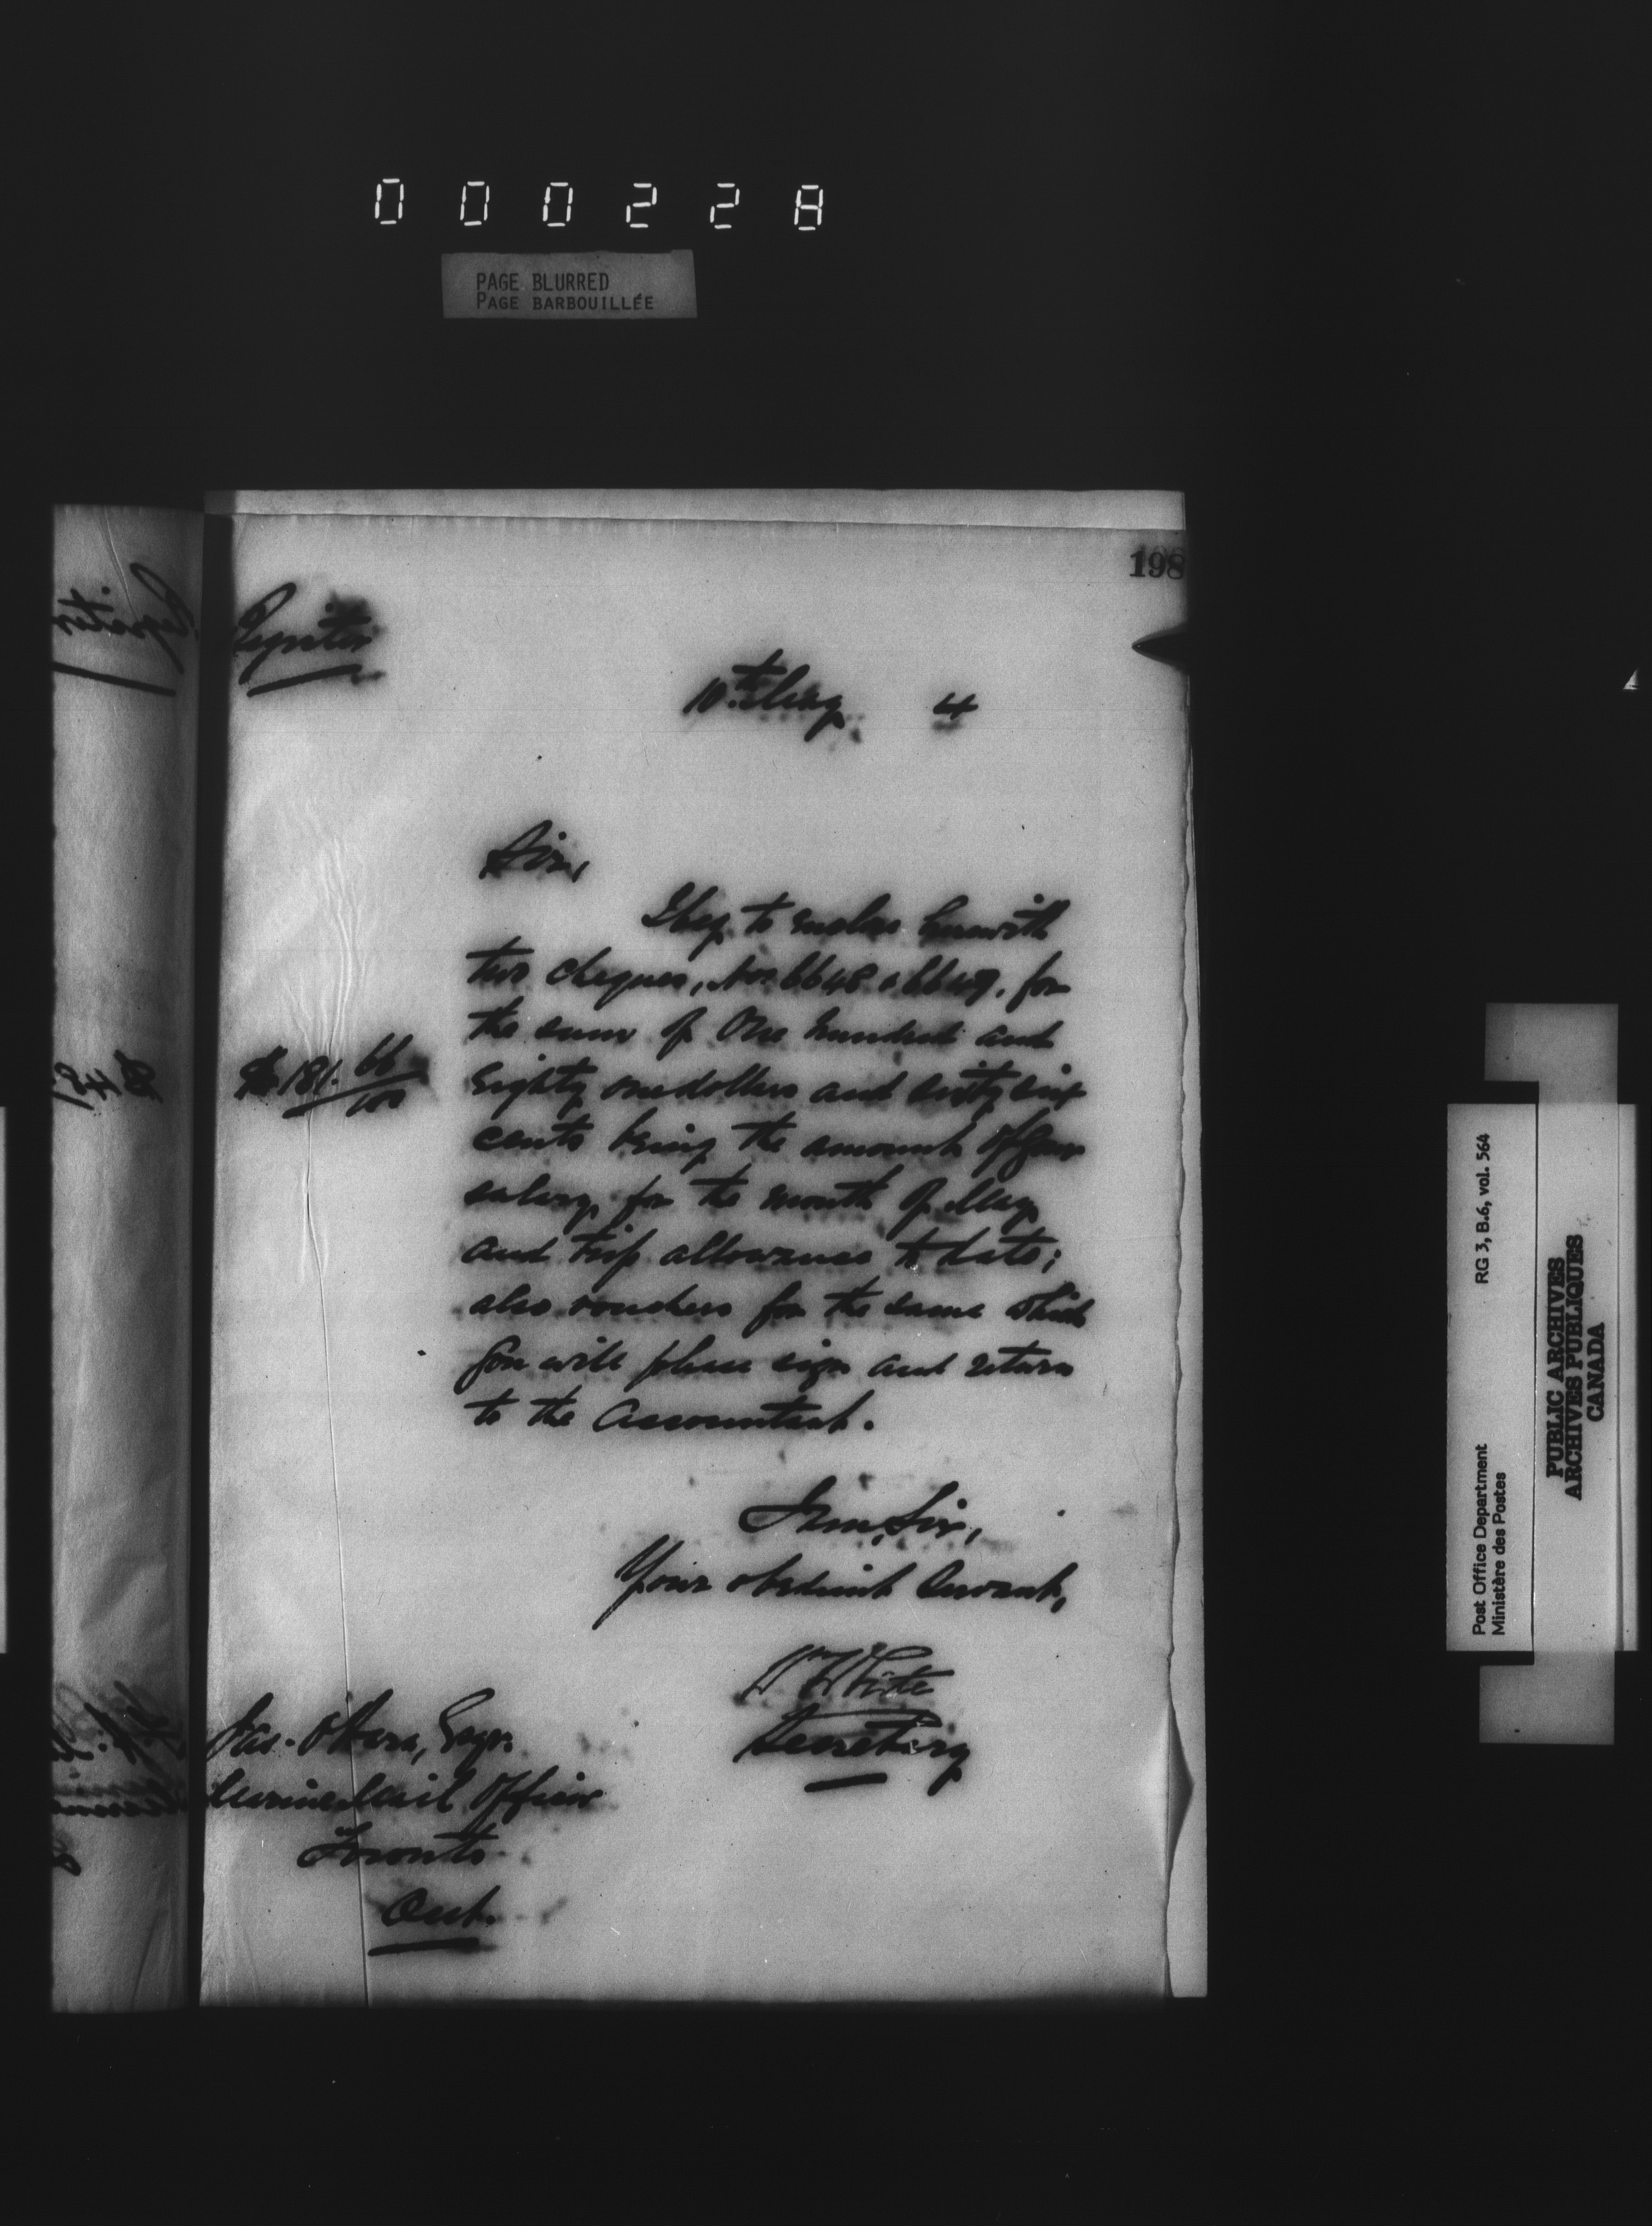 000228
PAGE BLURRED
PAGE BARBOUILLÉE
198
Register
10th May 4
Sir,
I beg to enclose herewith
two cheques, Nos 6648 & 6649, for
the sum of One hundred and
$181.66/100
Eighty one dollars and sixty six
cents being the amount of your
salary for the month of May
and trip allowance to date;
also vouchers for the same which
you will please sign and return
to the Accountant.
I am, Sir,
Your obedient Servant,
W White
Secretary
Jas. O'Hara, Esqr.
Marine Mail Officer
Toronto
Ont.
RG 3, B.6, vol. 564
Post Office Department
Ministère des Postes
PUBLIC ARCHIVES
ARCHIVES PUBLIQUES
CANADA